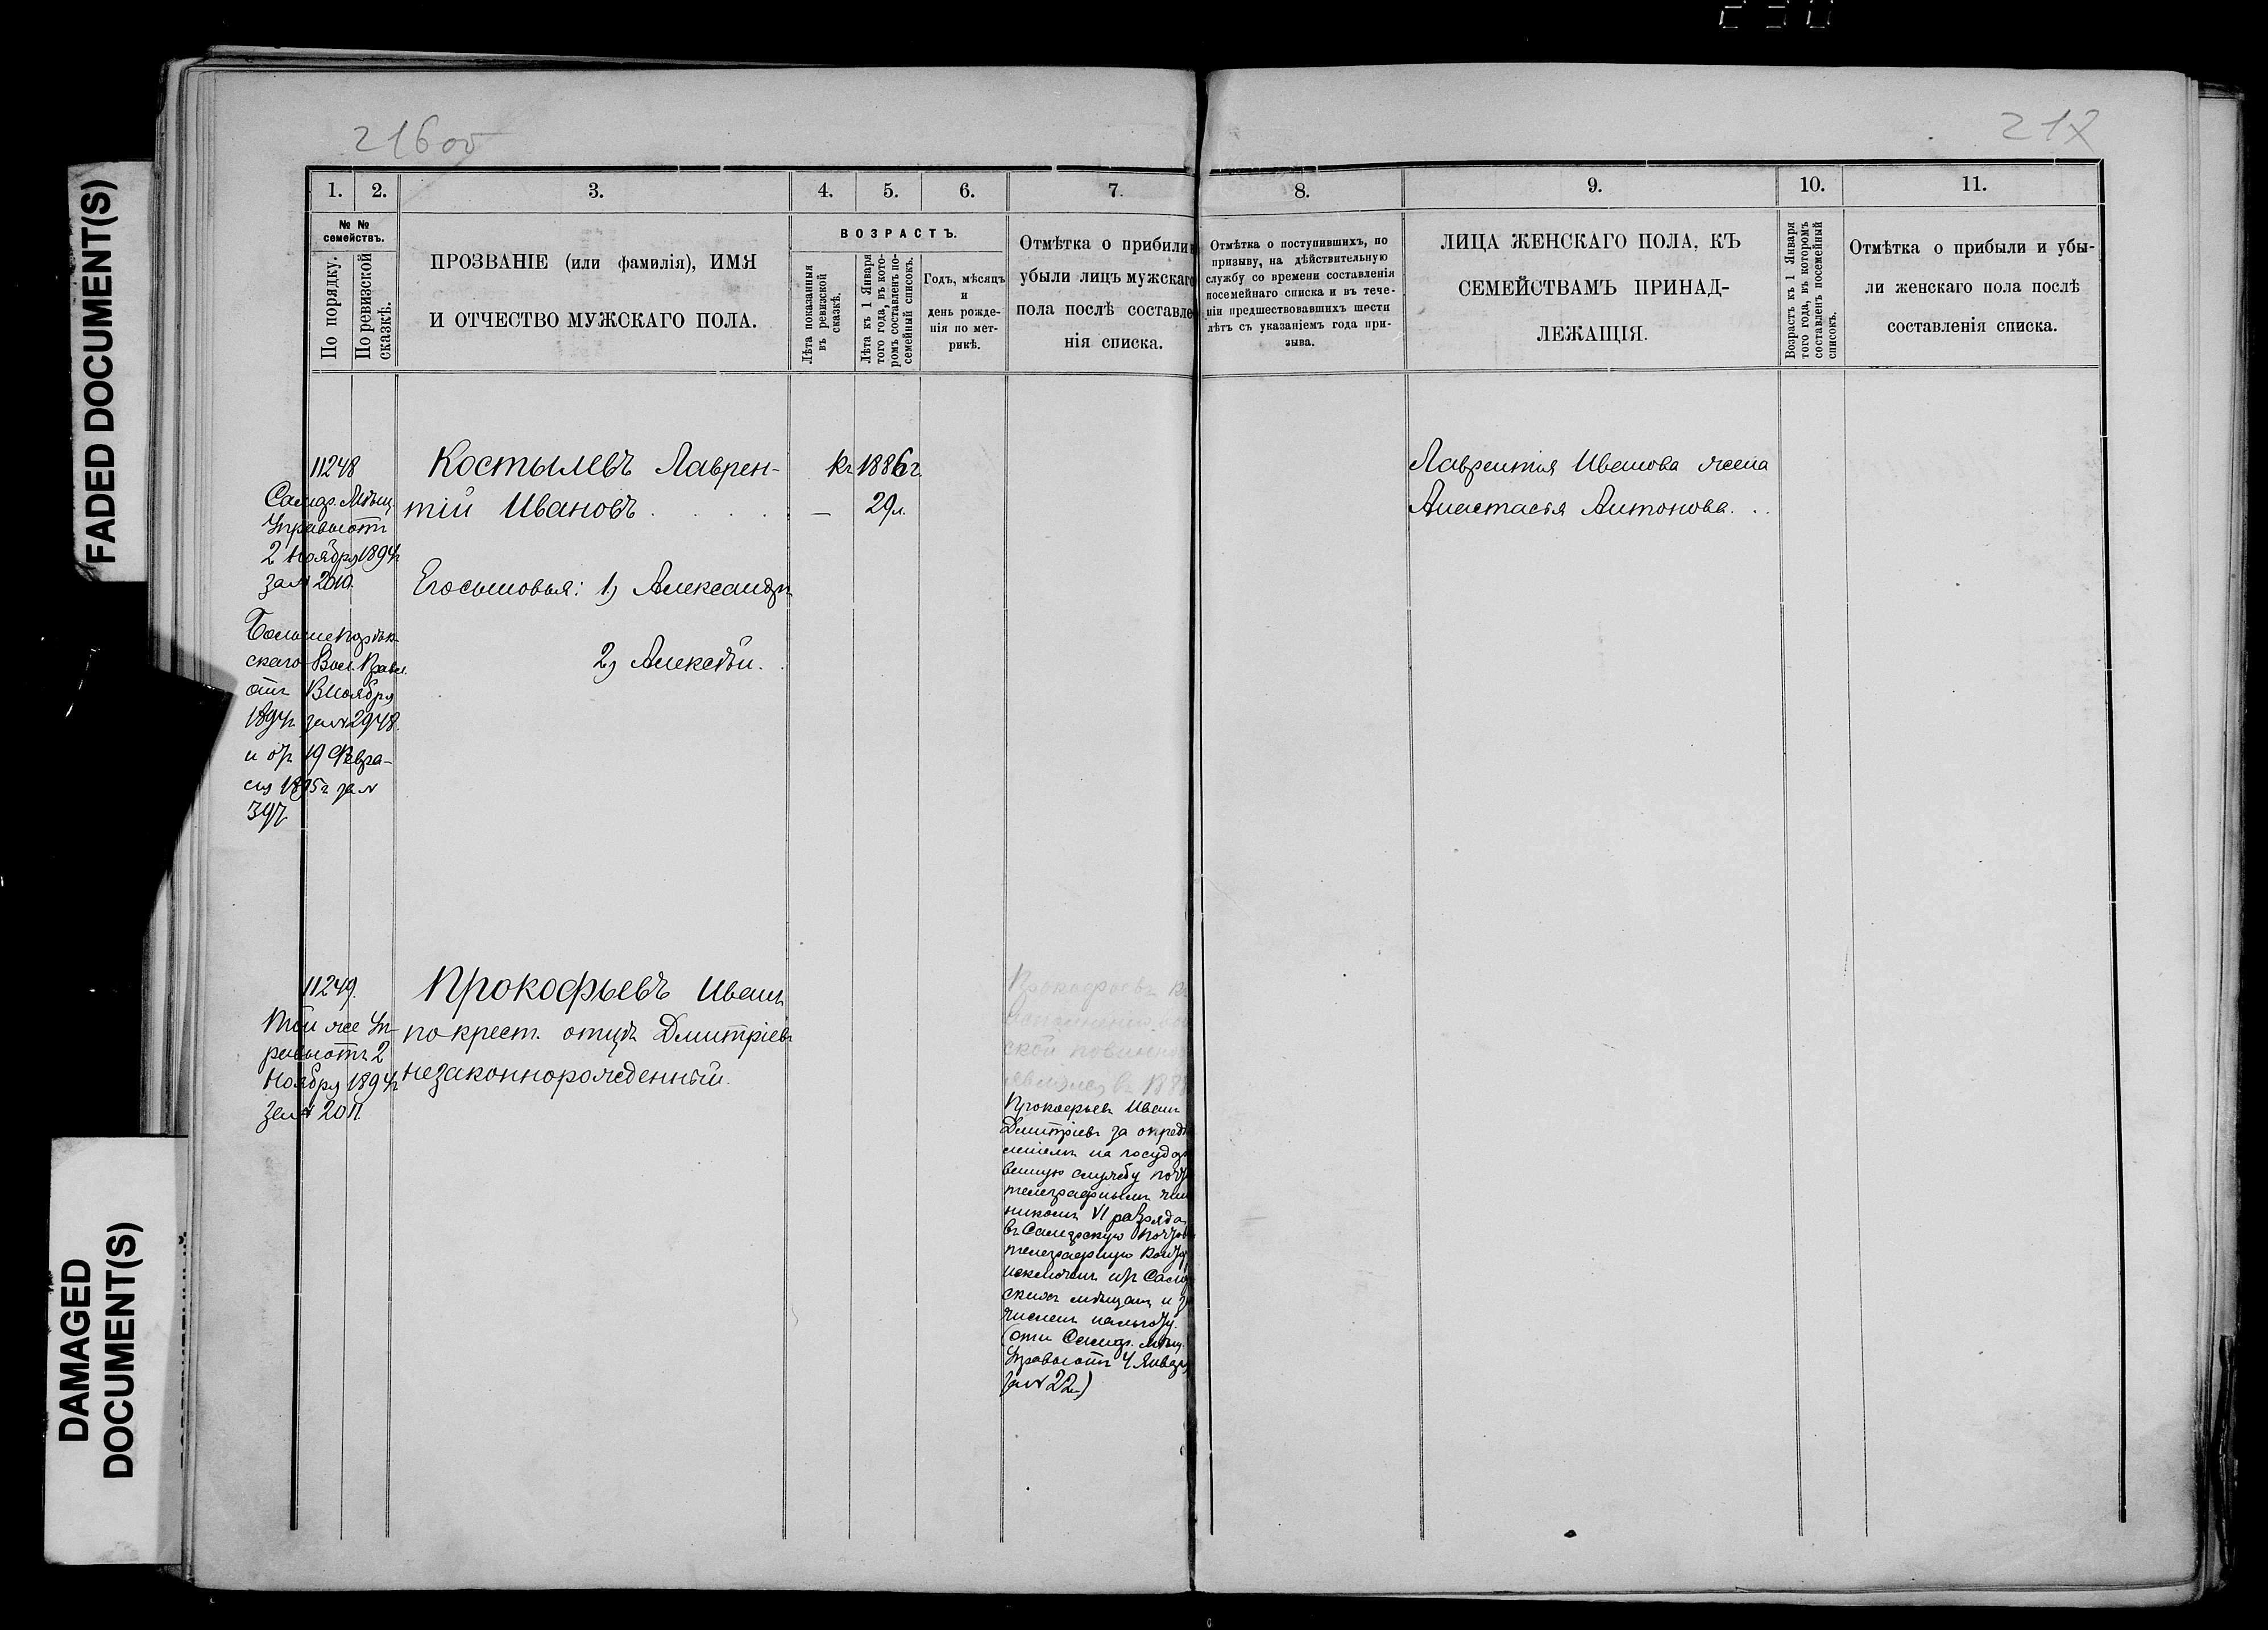 FADED DOCUMENT(S)
DAMAGED
DOCUMENT(S)
230
216 об
217
1. 2. 3. 4. 5. 6. 7. 8. 9. 10. 11.
№ №
семействъ.
По порядку.
По ревизской
сказкѣ.
ПРОЗВАНІЕ (или фамилія), ИМЯ
И ОТЧЕСТВО МУЖСКАГО ПОЛА.
ВОЗРАСТЪ.
Лѣта показанныя
въ ревизской
сказкѣ.
Лѣта къ 1 Января
того года, въ кото-
ромъ составленъ по-
семейный списокъ.
Годъ, мѣсяцъ
и
день рожде-
нія по мет-
рикѣ.
Отмѣтка о прибыли и
убыли лицъ мужскаго
пола послѣ составле
нія списка.
Отмѣтка о поступившихъ, по
призыву, на дѣйствительную
службу со времени составленія
посемейнаго списка и въ тече-
ніи предшествовавшихъ шести
лѣтъ съ указаніемъ года при-
зыва.
ЛИЦА ЖЕНСКАГО ПОЛА, КЪ
СЕМЕЙСТВАМЪ ПРИНАД-
ЛЕЖАЩІЯ.
Возрастъ къ 1 Января
того года, въ которомъ
составленъ посемейный
списокъ.
Отмѣтка о прибыли и убы-
ли женскаго пола послѣ
составленія списка.
11248
Самар. Мѣщ.
Управы отъ
2 Ноября 1894г
за № 2010.
скаго Вол. Правл.
отъ Ноября
1894г. за № 2948.
и от 19 Февра-
ля 1895г за №
397
Костылевъ Лаврен-
тій Ивановъ . . . .
Къ 1886г.
— 29л.
Его сыновья: 1) Александръ
2) Алексѣй.
Лаврентія Иванова жена
Анастасья Антонова. . .
11249.
Той же Уп-
равы отъ 2
Ноября 1894г
за № 2011.
Прокофьевъ Иванъ
по крест. отцу Дмитріевъ
незаконнорожденный.
Прокофьевъ
ской повинно
явился въ 188
Прокофьевъ Иванъ
Дмитріевъ за опредѣ
леніемъ на государ
венную службу почт
телеграфнымъ чин
никомъ VI разряда
въ Самарскую почтов
телеграфную контор
исключенъ изъ Сама
скихъ мѣщанъ и
численъ на льготу.
(отн Самар. Мѣщ.
Управы отъ 4 Января
за № 22)